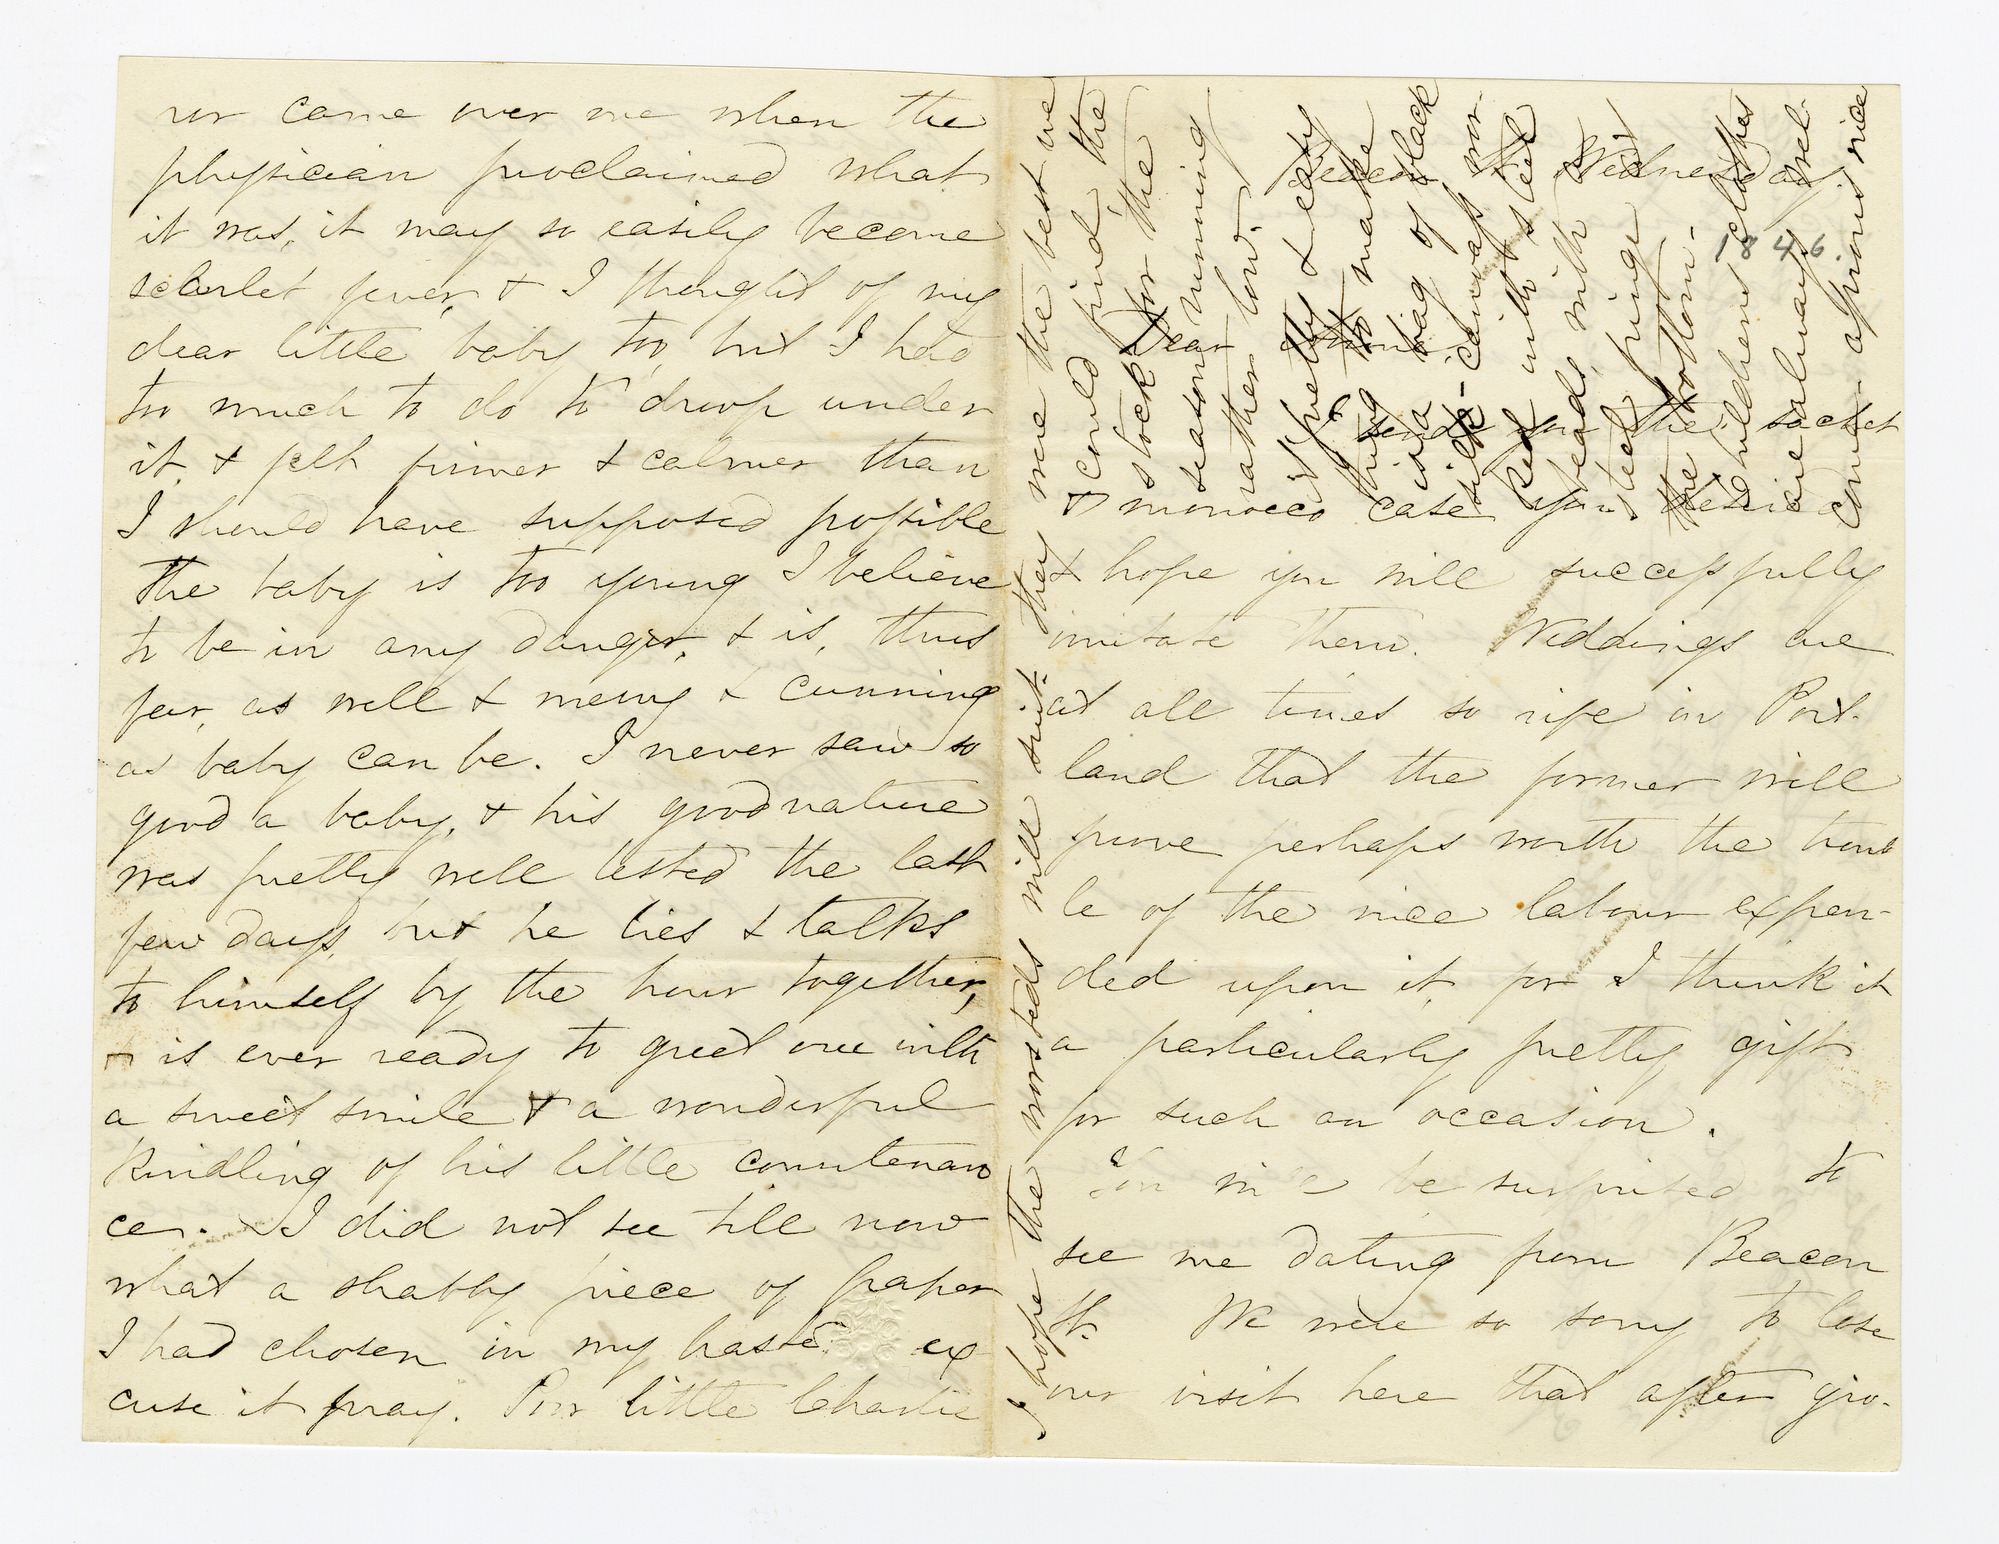 ror came over me when the
physician proclaimed what
it was, it may so easily become
scarlet fever, & I thought of my
dear little baby too, but I had
too much to do to droop under
it, & felt firmer & calmer than
I should have supposed possible
The baby is too young I believe
to be in any danger, & is, thus
far, as well & merry & cunning
as baby can be. I never saw so
good a baby, & his good nature
was pretty well tested the last
few days, but he lies & talks
to himself by the hour together,
& is ever ready to greet one with
a sweet smile & a wonderful
kindling of his little countenan
ce. I did not see till now
what a shabby piece of paper
I had chosen in my haste ex
cuse it pray. Poor little Charlie
Beacon St Wednesday.
1846.
Dear
I send you the sachet
& morocco case you desired
& hope you will successfully
imitate them. Weddings are
at all times so rife in Port-
land that the former will
prove perhaps worth the troub
le of the nice labour expen-
ded upon it, for I think it
a particularly pretty gift
for such an occasion.
You will be surprised to
see me dating from Beacon
St. We were so sorry to lose
our visit here that after gro-
I hope the worsteds will suit. They were the best we
could find, the
stock for the
season running
rather low.
A pretty & easy
thing to make
is a bag of black
silk-canvass wor-
ked with steel
beads, with a
steel fringe
the bottom.
Childrens clothes
are always wel-
come - aprons nice